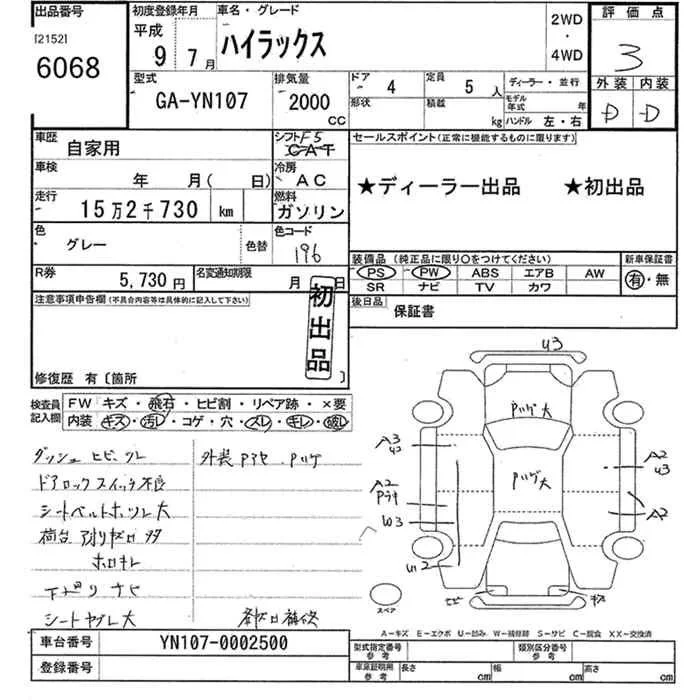 出品番号
[2152]
6068
初度登録年月
平成
9年 7月
車名・グレード
ハイラックス
2WD
・
4WD
評価点
3
外装 内装
D D
型式
GA-YN107
排気量
2000
CC
ドア 4
定員 5人
ディーラー・並行
形状
積載 kg
モデル年式 年
ハンドル 左・右
車歴
自家用
シフト F5
C A T
車検
年 月( 日)
冷房
AC
走行
15万2千730 km
燃料
ガソリン
色
グレー
色替
色コード
196
R券
5,730円
名変通知期限
月 日
セールスポイント(正常に機能するものに限ります)
★ディーラー出品 ★初出品
装備品(純正品に限り○をつけてください)
PS PW ABS エアB AW
SR ナビ TV カワ
新車保証書
有・無
後日品
保証書
注意事項申告欄(不具合内容等は具体的に記入して下さい)
初出品
修復歴 有〔箇所 〕
検査員記入欄
FW キズ・飛石・ヒビ割・リペア跡・×要
内装 キズ・汚レ・コゲ・穴・スレ・キレ・破レ
ダッシュ ヒビ ワレ
外装 Pアセ Pハゲ
ドアロックスイッチ不良
シートベルトホツレ大
荷台 アオリサビ凹 多
ホロキレ
下サビ ナビ
シートヤブレ大
U3
Pハゲ大
A3
U2
A2
U3
Pハゲ大
A2
W3
A2
U2
ヒビ
キズ
スペア
A-キズ E-エクボ U-凹み W-補修跡 S-サビ C-腐食 XX-交換済
車台番号
YN107-0002500
登録番号
型式指定番号
参考
類別区分番号
参考
車庫証明用
参考
長さ cm
幅 cm
高さ cm